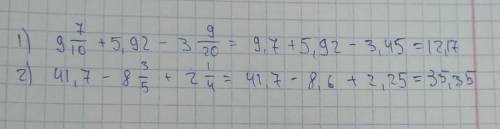 1) 9 7/10 + 5,92 - 3 9/20 = 9,7 + 5,92 - 3,45 = 12,17
2) 41,7 - 8 3/5 + 2 1/4 = 41,7 - 8,6 + 2,25 = 35,35